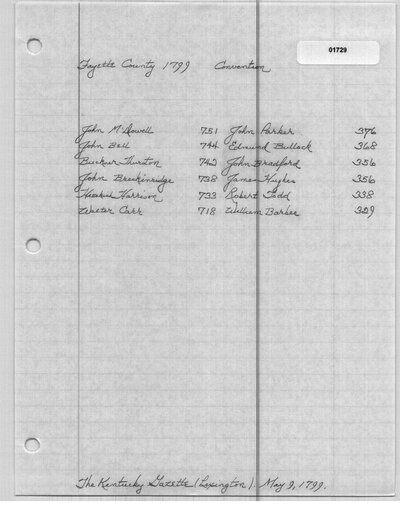 01729
Fayette County 1799 Convention
John McDowell 751 John Parker 376
John Bell 744 Edmund Bullock 368
Buckner Thurston 742 John Bradford 356
John Breckinridge 738 James Hughes 356
Hezekiah Harrison 733 Robert Todd 338
Walter Carr 718 William Barbee 329
The Kentucky Gazette (Lexington). May 9, 1799.